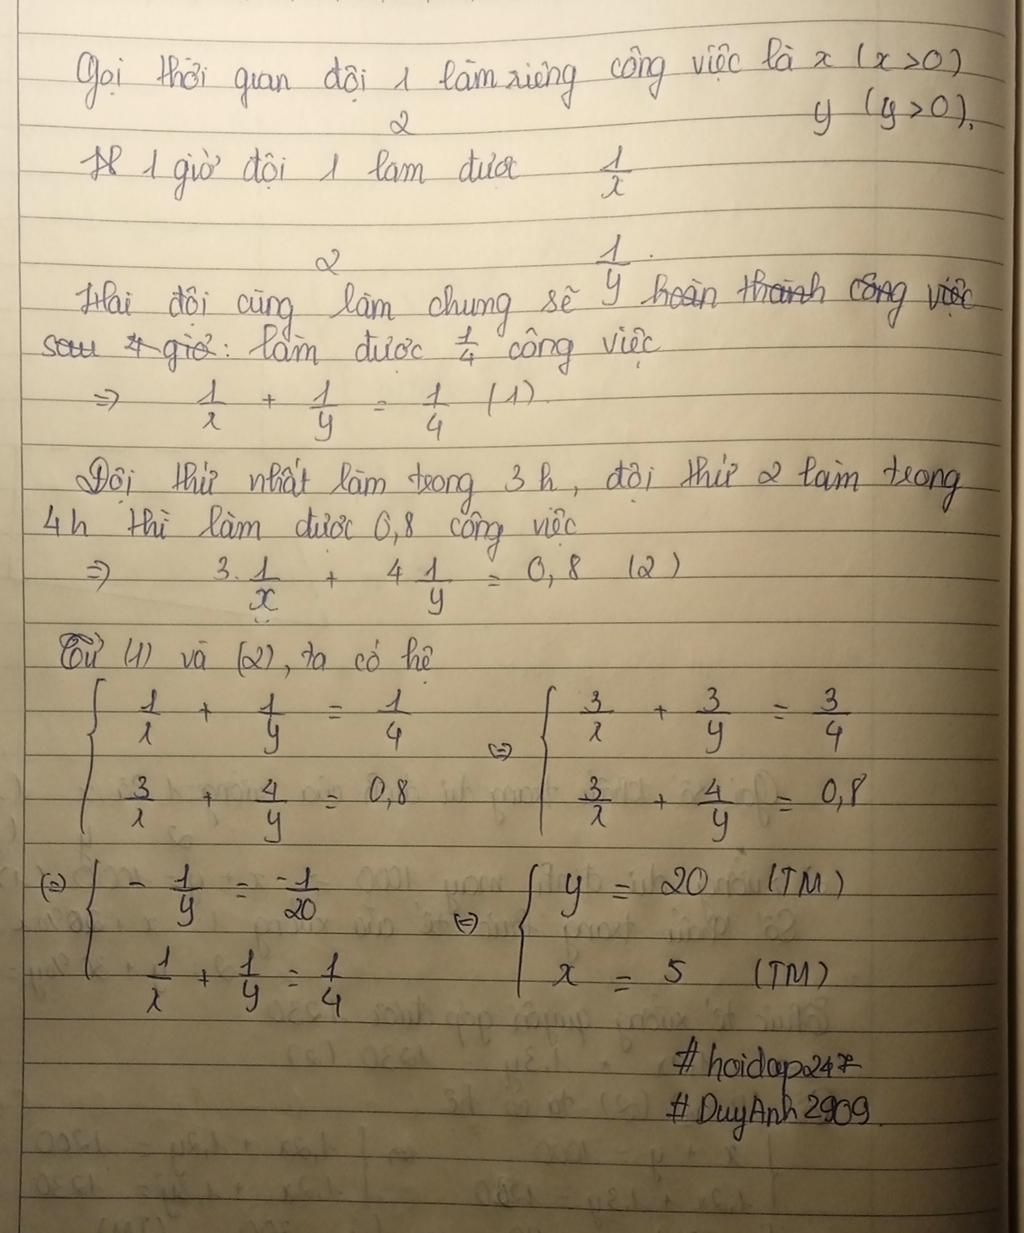 Gọi thời gian đội 1 làm riêng công việc là x (x>0)
2 y (y>0).
1 giờ đội 1 làm được 1/x
2 1/y.
Hai đội cùng làm chung sẽ hoàn thành công việc
sau 4 giờ: làm được 1/4 công việc
=> 1/x + 1/y = 1/4 (1)
Đội thứ nhất làm trong 3h, đội thứ 2 làm trong
4h thì làm được 0,8 công việc
=> 3. 1/x + 4 1/y = 0,8 (2)
Từ (1) và (2), ta có hệ
{ 1/x + 1/y = 1/4 (=) { 3/x + 3/y = 3/4
3/x + 4/y = 0,8 3/x + 4/y = 0,8
(=) { - 1/y = -1/20 (=) { y = 20 (TM)
1/x + 1/y = 1/4 x = 5 (TM)
#hoidap247
#DuyAnh2909